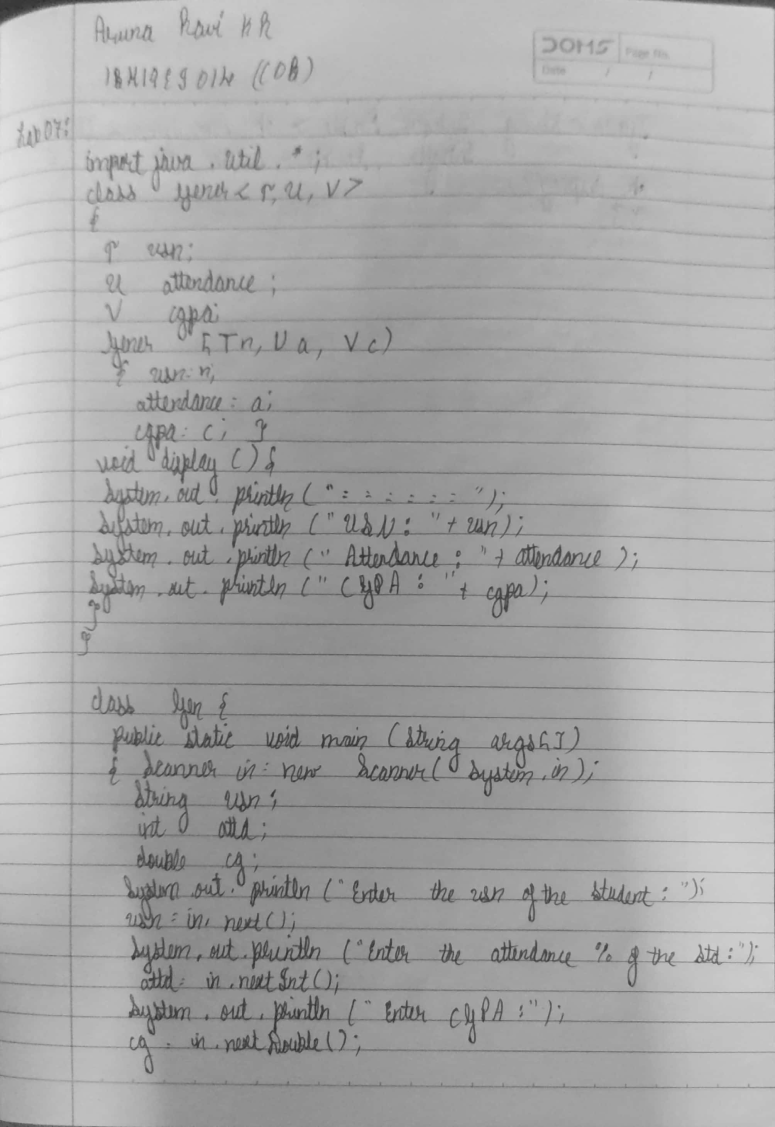 Aruna Ravi K R
DOMS Page No.
Date / /
(COB)
Lab 07:
import java . util . * ;
class gener < T, U, V >
{
T usn;
U attendance ;
V cgpa
gener (T n, U a, V c)
{ usn = n;
attendance = a;
cgpa = c; }
void display () {
System. out . println ("= = = = = = =");
System. out . println ("USN: "+ usn);
System . out . println (" Attendance : "+ attendance );
System . out . println (" CGPA : "+ cgpa);
}
}
class Gen {
public static void main (String args[])
{ Scanner in = new Scanner( System . in);
String usn ;
int attd ;
double cg ;
System out . println ("Enter the usn of the student : ");
usn = in. next();
System. out. println ("Enter the attendance % of the std :");
attd = in . nextInt();
System . out . println (" Enter CGPA :");
cg = in. next Double ();